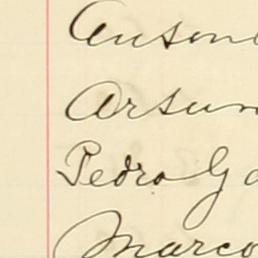 Anton
Artur
Pedro G
Marco